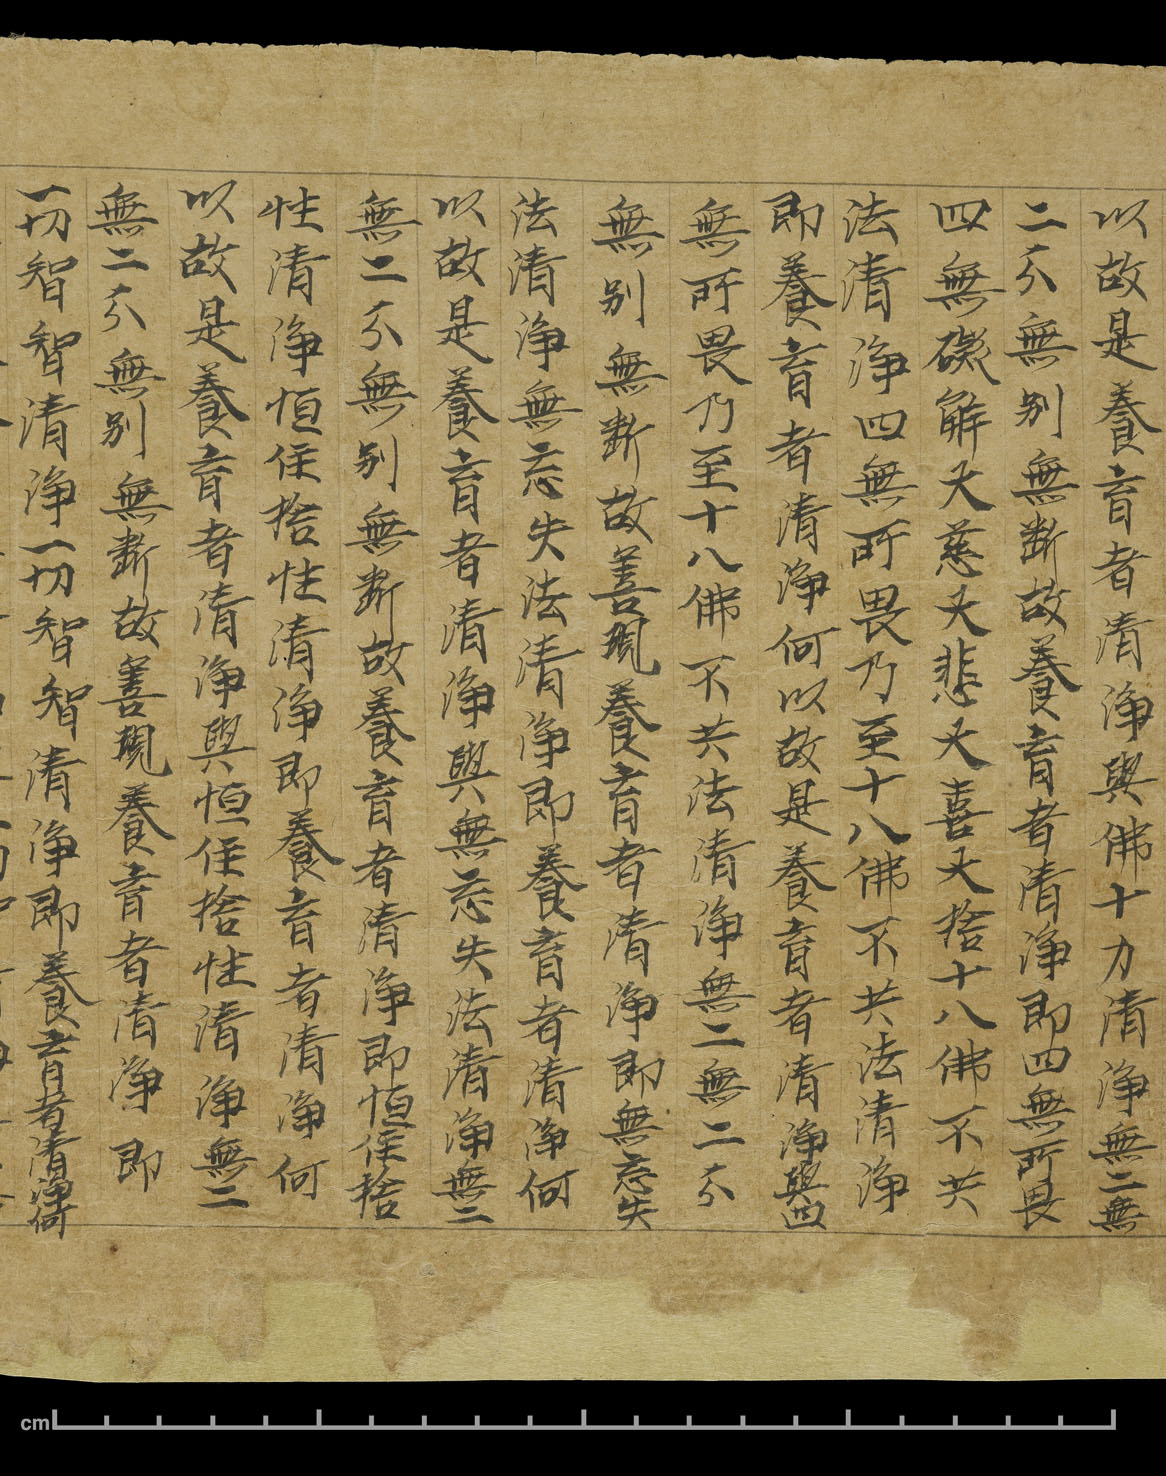 以故是養育者清淨與佛十力清淨無二無
二尒無別無斷故養育者清淨即四無所畏
四無礙解大慈大悲大喜大捨十八佛不共
法清淨四無所畏乃至十八佛不共法清淨
即養育者清淨何以故是養育者清淨與四
無所畏乃至十八佛不共法清淨無二無二尒
無別無斷故善現養育者清淨即無忘失
法清淨無忘失法清淨即養育者清淨何
以故是養育者清淨與無忘失法清淨無二
無二尒無別無斷故養育者清淨即恒住捨
性清淨恒住捨性清淨即養育者清淨何
以故是養育者清淨與恒住捨性清淨無二
無二尒無別無斷故善現養育者清淨即
一切智智清淨一切智智清淨即養育者清淨何